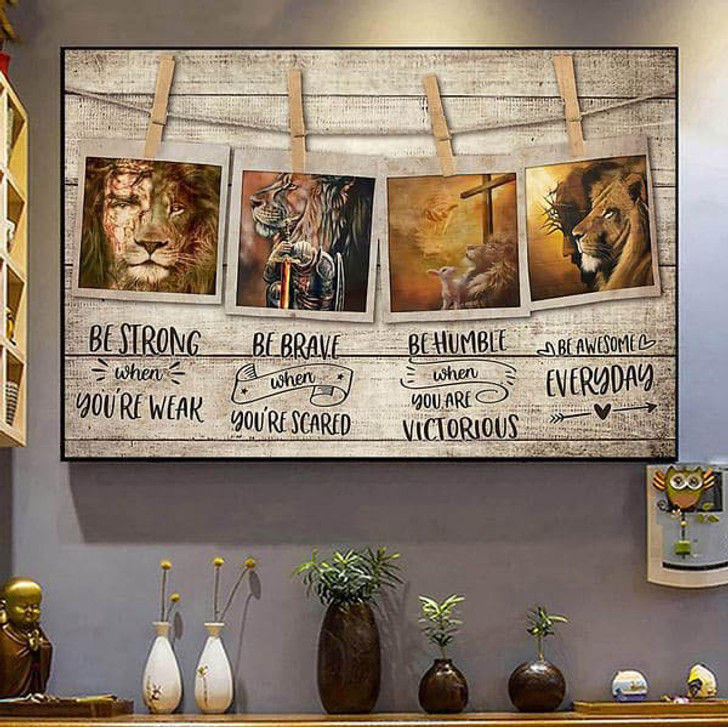 BE STRONG
when
YOU'RE WEAK
BE BRAVE
when
YOU'RE SCARED
BE HUMBLE
when
YOU ARE
VICTORIOUS
BE AWESOME
EVERYDAY